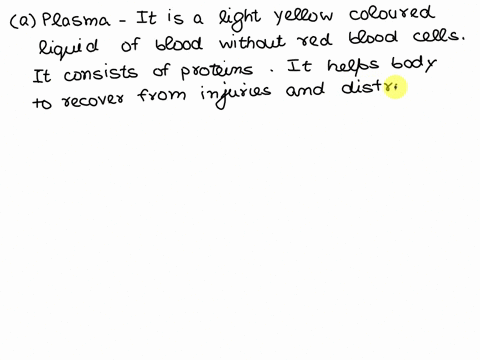 (a) Plasma - It is a light yellow coloured
liquid of blood without red blood cells.
It consists of proteins. It helps body
to recover from injuries and distr